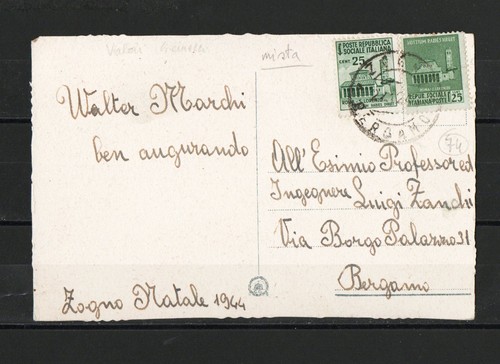 mista
POSTE REPUBBLICA
SOCIALE ITALIANA
CENT. 25
HOSTIUM RABIES DIRUIT
REPUB. SOCIALE
ITALIANA-POSTE
25
BERGAMO
74
Walter Marchi
ben augurando
Zogno Natale 1944
All'Esimio Professore ed
Ingegnere Luigi Zanchi
Via Borgo Palazzo 31
Bergamo